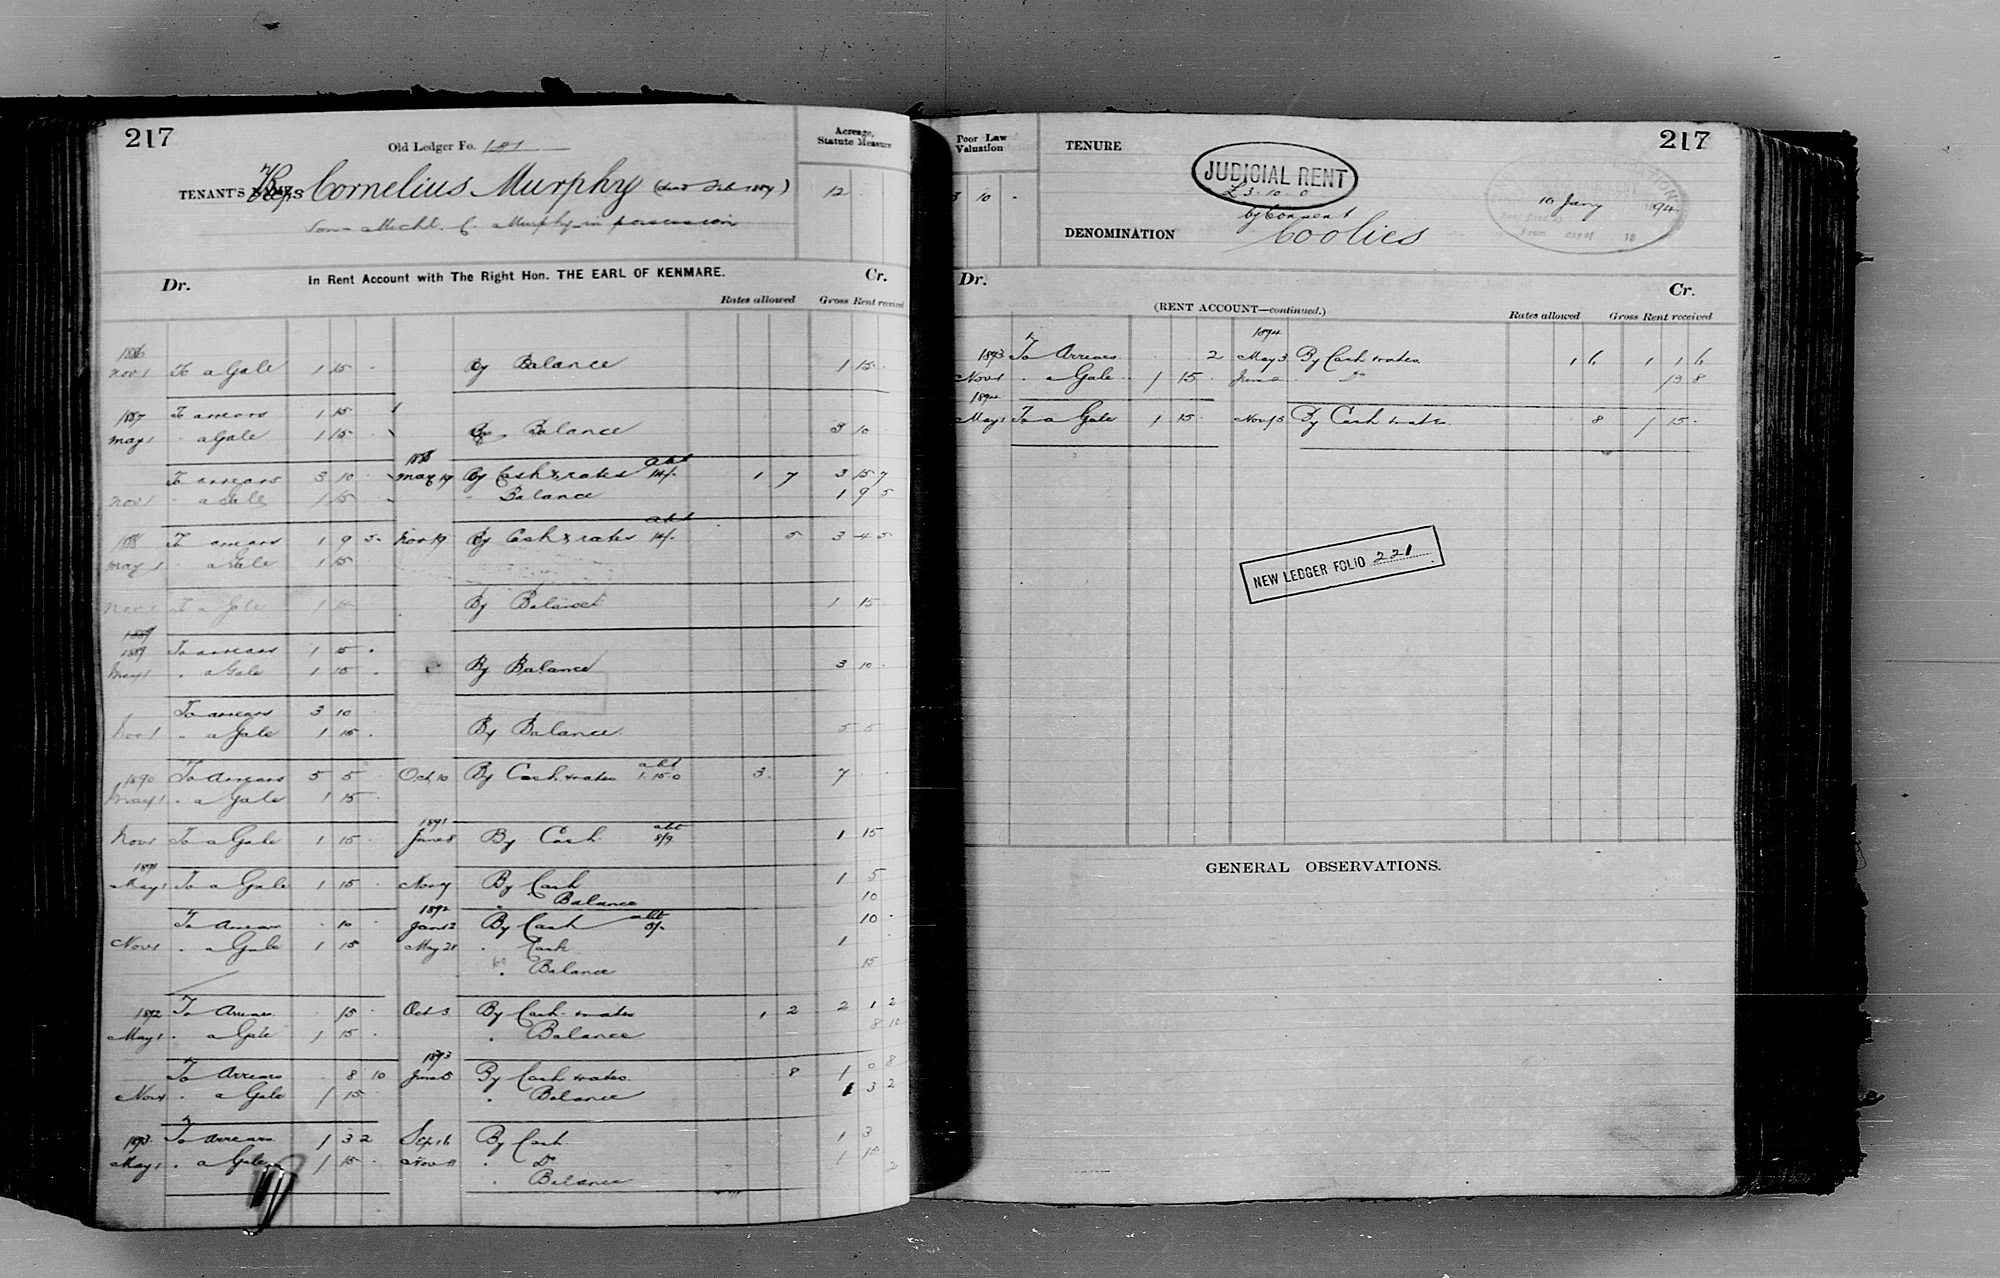 217
Old Ledger Fo. 181
Acreage, Statute Measure
TENANT'S Reps Cornelius Murphy (dead Feb 1887) 12
Son Michl. C. Murphy in possession
In Rent Account with The Right Hon. THE EARL OF KENMARE.
Dr. Cr.
Rates allowed Gross Rent received
1886
Nov 1 To a Gale 1 15 - By Balance 1 15 -
1887 To arrears 1 15 -
May 1 " a Gale 1 15 - By Balance 3 10
1888
To arrears 3 10 - May 19 By Cash & rates abt 14/- 1 7 3 15 7
Nov 1 " a Gale 1 15 - " Balance 1 9 5
1888 To arrears 1 9 5 Nov 19 By Cash & rates abt 14/- 5 3 4 5
May 1 " a Gale 1 15
Nov 1 To a Gale 1 15 By Balance 1 15 -
1889
1889 To arrears 1 15 -
May 1 " a Gale 1 15 - By Balance 3 10 -
To arrears 3 10 -
Nov 1 " a Gale 1 15 - By Balance 5 5
1890 To Arrears 5 5 - Oct 10 By Cash & rates abt 1.15.0 3 - 7 - -
May 1 " a Gale 1 15 -
1891
Nov 1 To a Gale 1 15 - June 8 By Cash abt 8/9 1 15
1891
May 1 To a Gale 1 15 - Nov 7 By Cash 1 5
" Balance 10
1892
To Arrears - 10 - Jan 12 By Cash abt 5/- 10 -
Nov 1 " a Gale 1 15 May 28 " Cash 1 -
" Balance 15
1892 To Arrears - 15 - Oct 3 By Cash & rates 1 2 2 1 2
May 1 " a Gale 1 15 - " Balance 8 10
1893
To Arrears - 8 10 June 5 By Cash & rates 8 1 0 8
Nov 1 " a Gale 1 15 - " Balance 1 3 2
1893 To Arrears 1 3 2 Sep 16 By Cash 1 3
May 1 " a Gale 1 15 - Nov 11 " Do 1 15
" Balance 2
217
Poor Law Valuation
3 10 -
TENURE
JUDICIAL RENT
£3-10-0
by Consent
10 Jany 1894
DENOMINATION Coolies
Dr. Cr.
(RENT ACCOUNT—continued.)
Rates allowed Gross Rent received
1894
1893 To Arrears - - 2 May 3 By Cash & rates 1 6 1 1 6
Nov 1 " a Gale 1 15 - June " Do 13 8
1894
May 1 To a Gale 1 15 - Nov 15 By Cash & rates 8 1 15 -
NEW LEDGER FOLIO 221
GENERAL OBSERVATIONS.